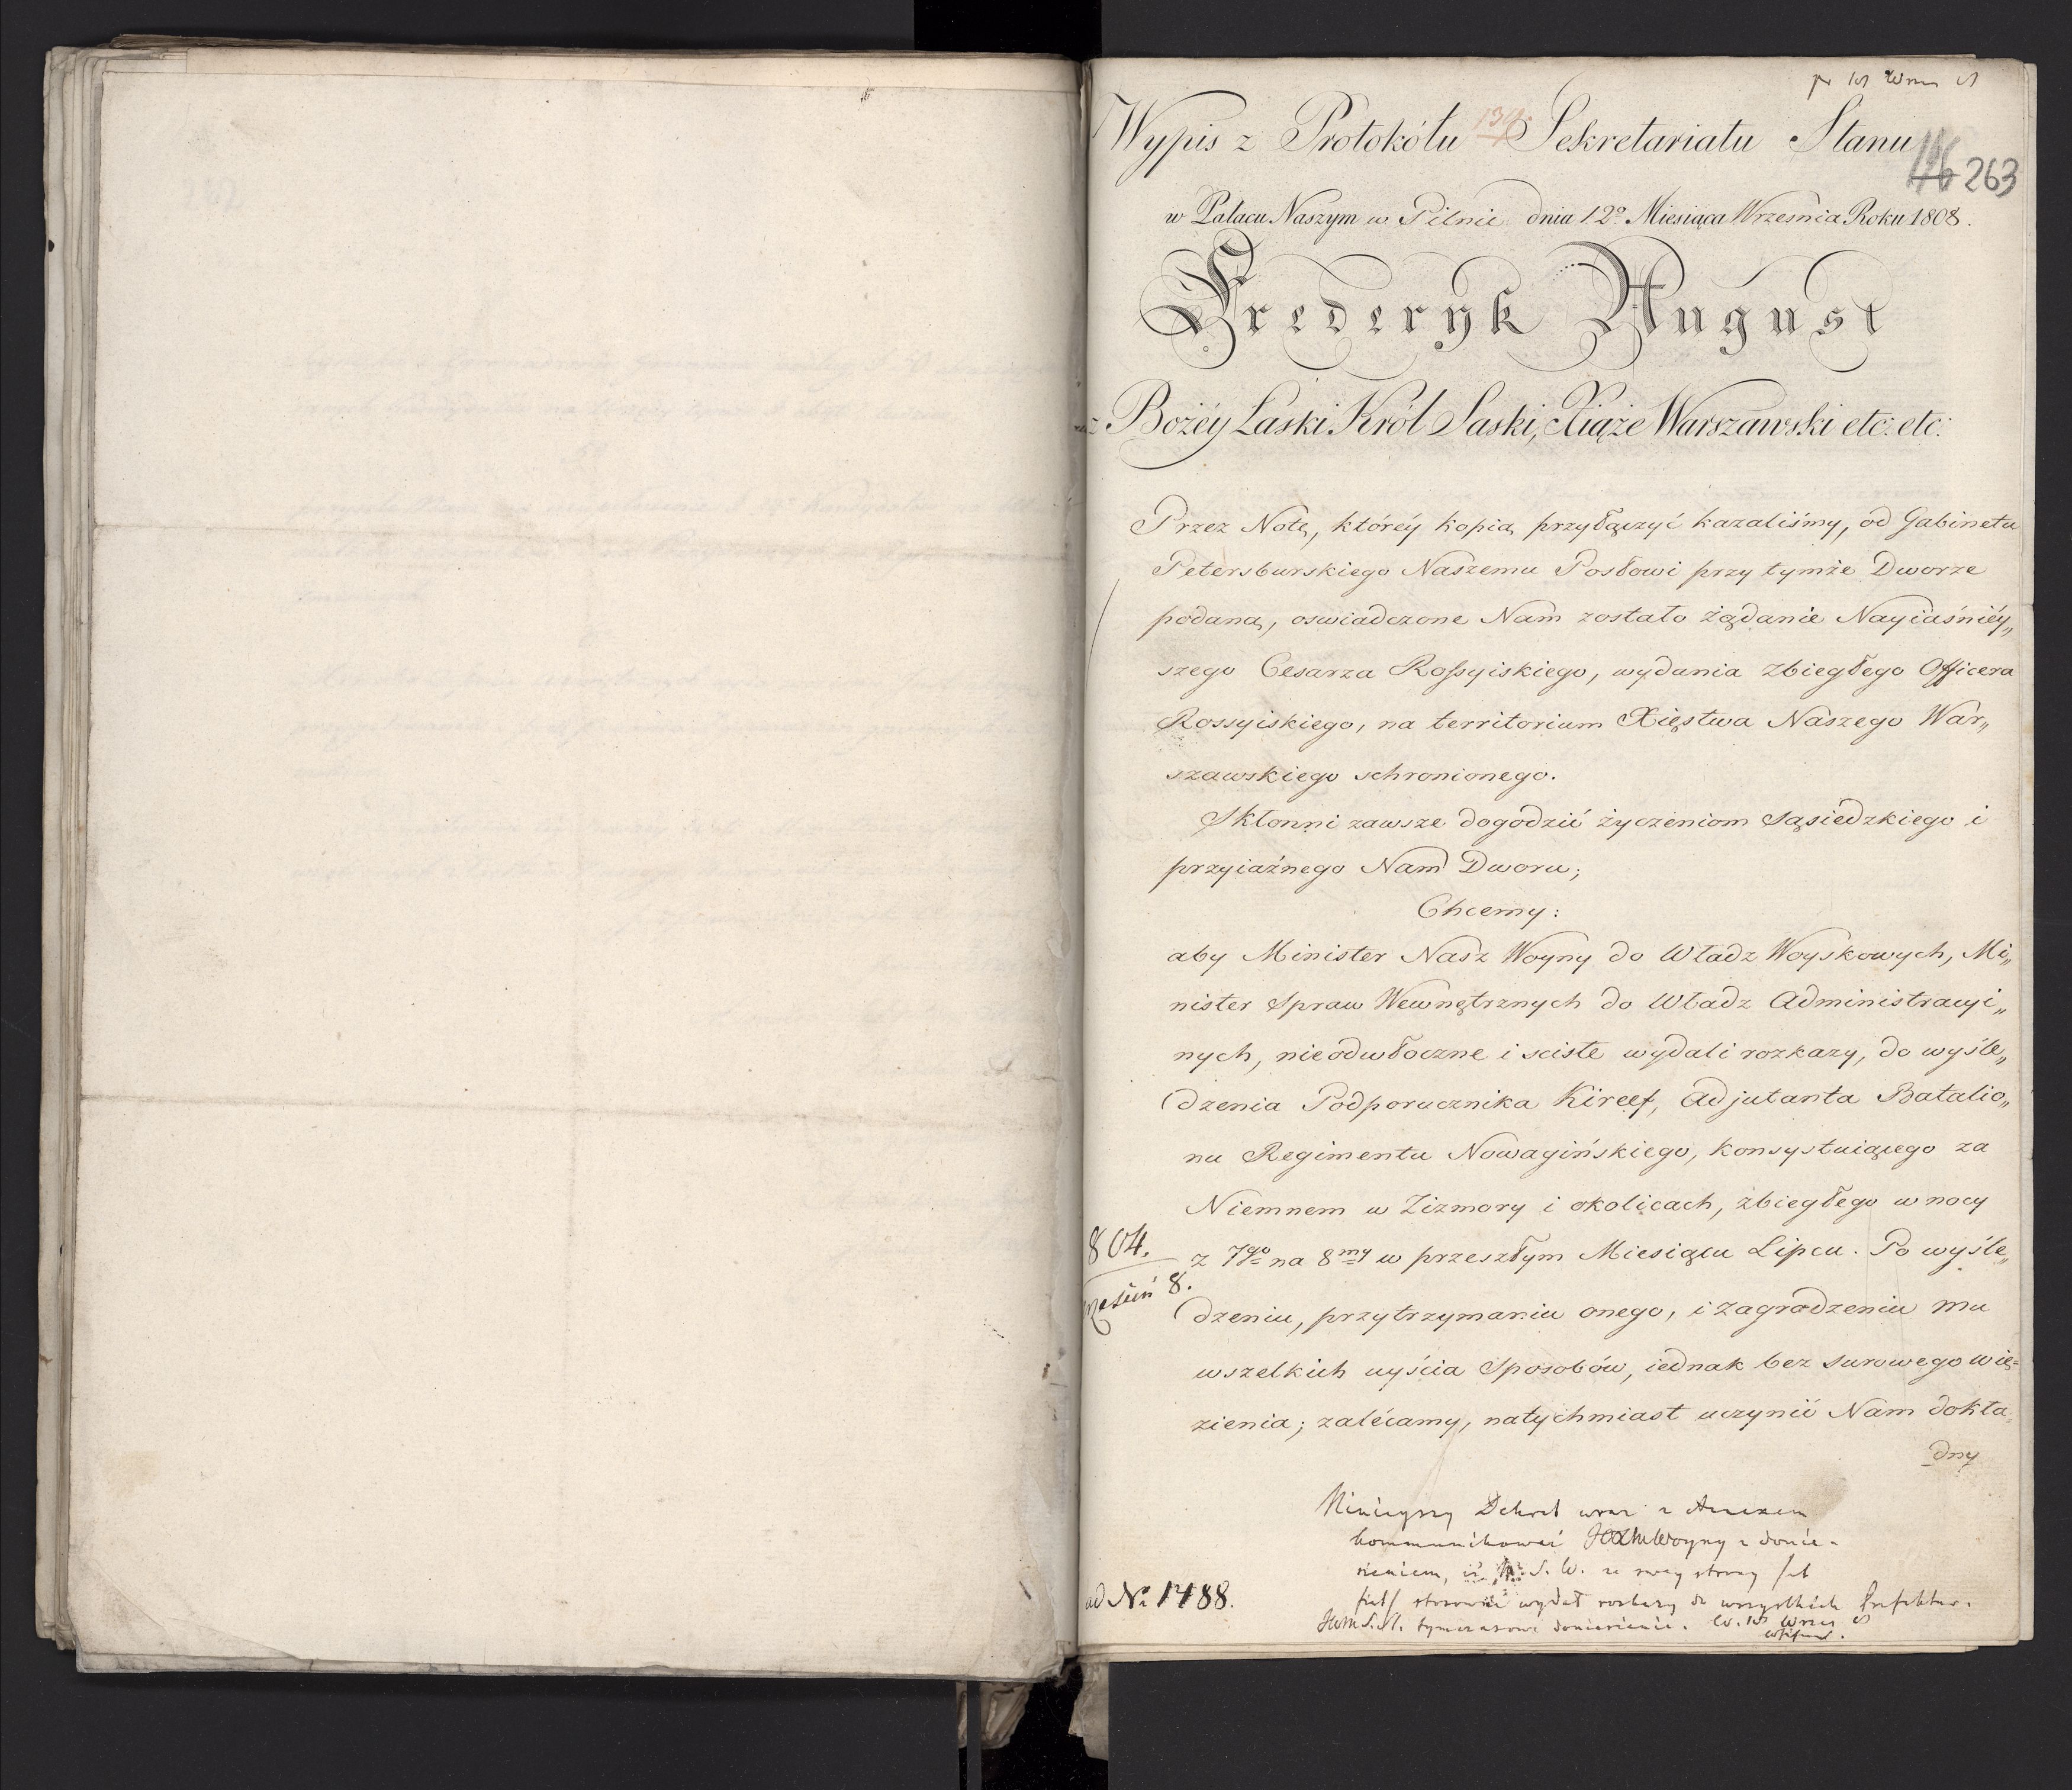 Wypis z Protokółu Sekretariatu Stanu
139
146 263
w Pałacu Naszym w Pilnic dnia 12º Miesiąca Wrzesnia Roku 1808.
Frederyk August
z Bożéy Łaski Król Saski, Xiąże Warszawski etc: etc:
Przez Notę, któréy kopią przyłączyć kazaliśmy, od Gabinetu
Petersburskiego Naszemu Posłowi przy tymże Dworze
podaną, oswiadczone Nam zostało żądanie Nayiaśniéy„
szego Cesarza Rossyiskiego, wydania zbiegłego Officera
Rossyiskiego, na territorium Xięstwa Naszego War„
szawskiego schronionego.
Skłonni zawsze dogodzić życzeniom sąsiedzkiego i
przyiaźnego Nam Dworu;
Chcemy:
aby Minister Nasz Woyny do Władz Woyskowych, Mi„
nister Spraw Wewnętrznych do Władz Administracyi„
nych, nieodwłoczne i sciste wydali rozkazy, do wyśle„
dzenia Podporucznika Kireef, Adjutanta Batalio„
nu Regimentu Nowagińskiego, konsystuiącego za
Niemnem w Zizmory i okolicach, zbiegłego w nocy
804.
z 7go na 8my w przeszłym Miesiącu Lipcu. Po wyśle„
8.
dzeniu, przytrzymaniu onego, i zagrodzeniu mu
wszelkich uyścia sposobów, iednak bez surowego wię=
zienia; zalécamy, natychmiast uczynić Nam dokła=
dny
Ninieyszy Dekret wraz z Annexem
kommunikować Woyny z donie-
sieniem, iż S. W. ze swey strony
stosownie wydał rozkazy do wszystkich Prefektur.
ad No 1488.
tymczasowe doniesienie.